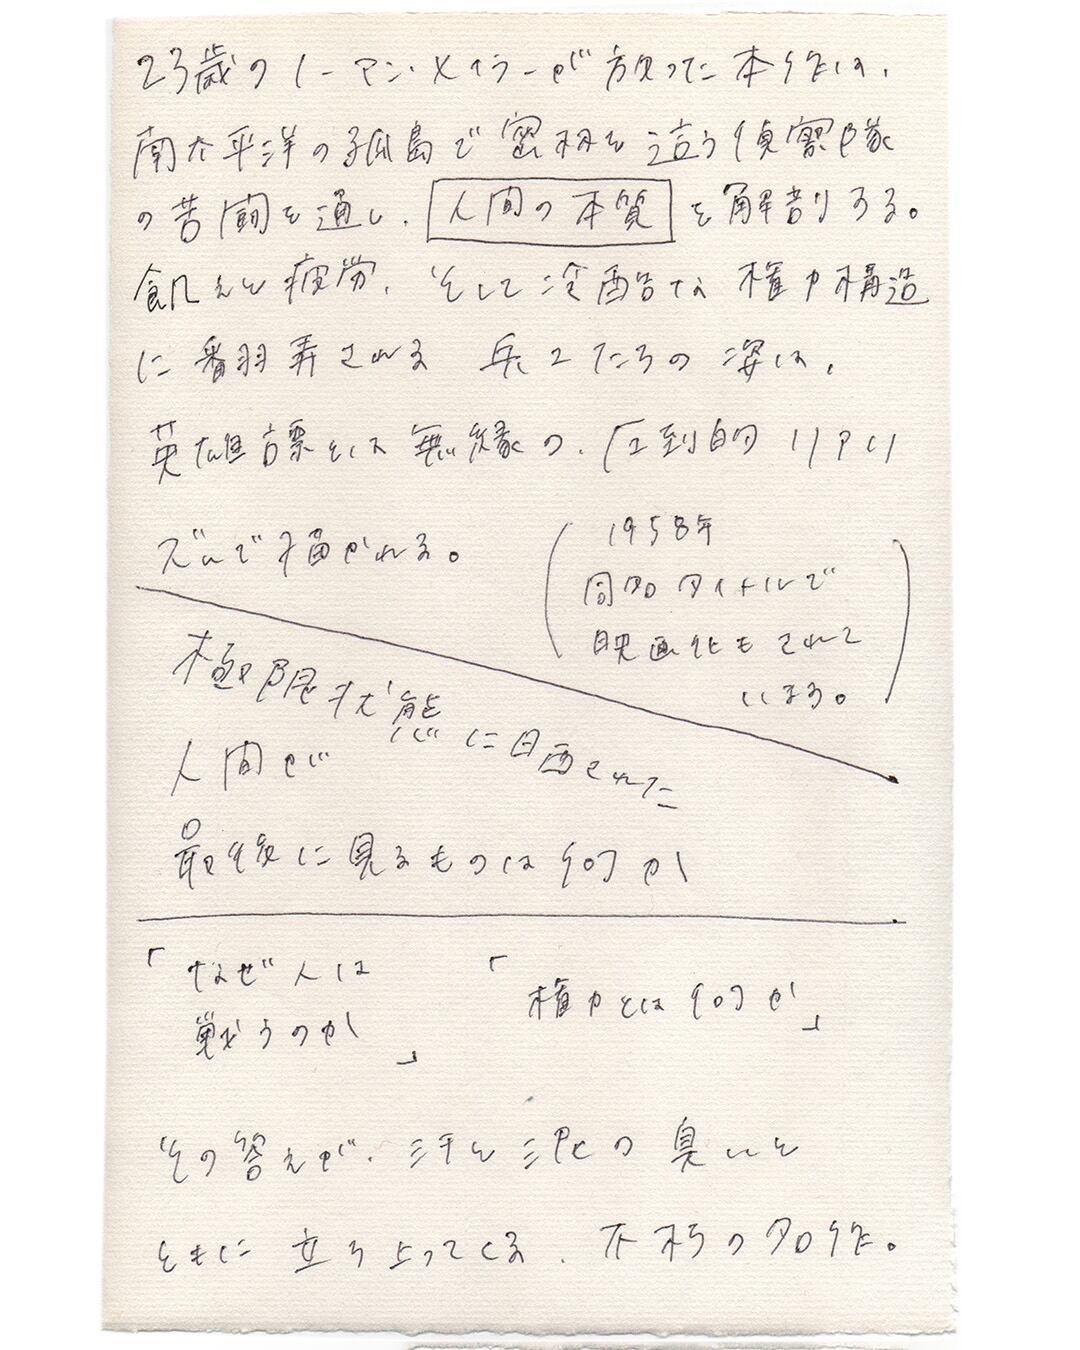 23歳のノーマン・メイラーが放った本作は、
南太平洋の孤島で密林を這う偵察隊
の苦闘を通し、人間の本質を解剖する。
飢えと疲労、そして冷酷な権力構造
に翻弄される兵士たちの姿は、
英雄譚とは無縁の、圧倒的リアリ
ズムで描かれる。
(1958年
同名タイトルで
映画化もされて
いまる。)
極限状態に日晒された
人間が
最後に見るものは何か
「なぜ人は
戦うのか」
「権力とは何か」
その答えが、汗と泥の臭いと
ともに立ち上ってくる、不朽の名作。